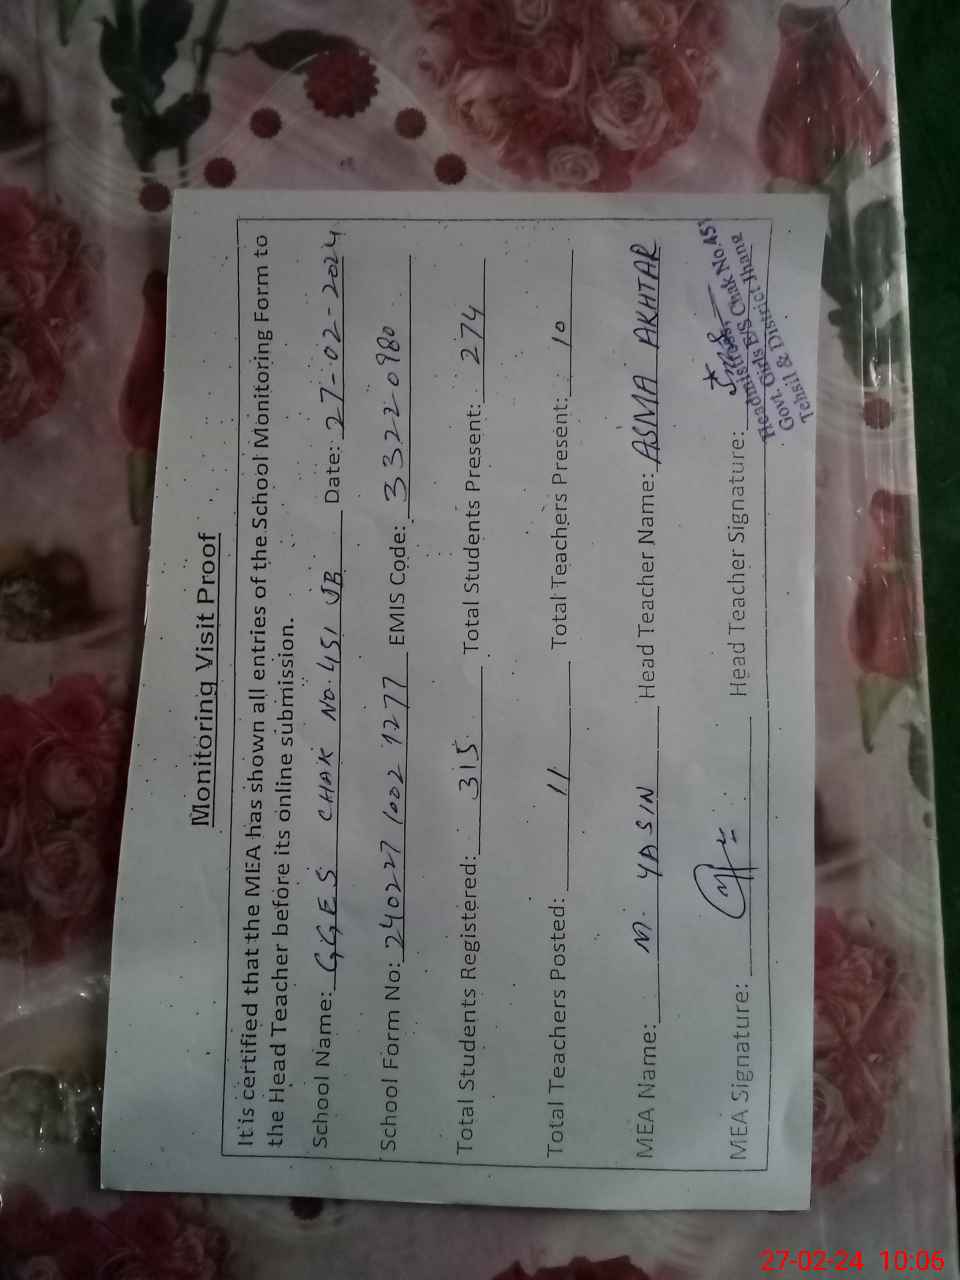 Monitoring Visit Proof
It is certified that the MEA has shown all entries of the School Monitoring Form to
the Head Teacher before its online submission.
School Name: G.G.E.S CHAK No. 451 JB Date: 27-02-2024
School Form No: 240227 1002 1277 EMIS Code: 33220980
Total Students Registered: 315 Total Students Present: 274
Total Teachers Posted: 11 Total Teachers Present: 10
MEA Name: M. YASIN Head Teacher Name: ASMA AKHTAR
MEA Signature: Head Teacher Signature:
Headmistress,
Govt. Girls E/S Chak No.451
Tehsil & District Jhang
27-02-24 10:06